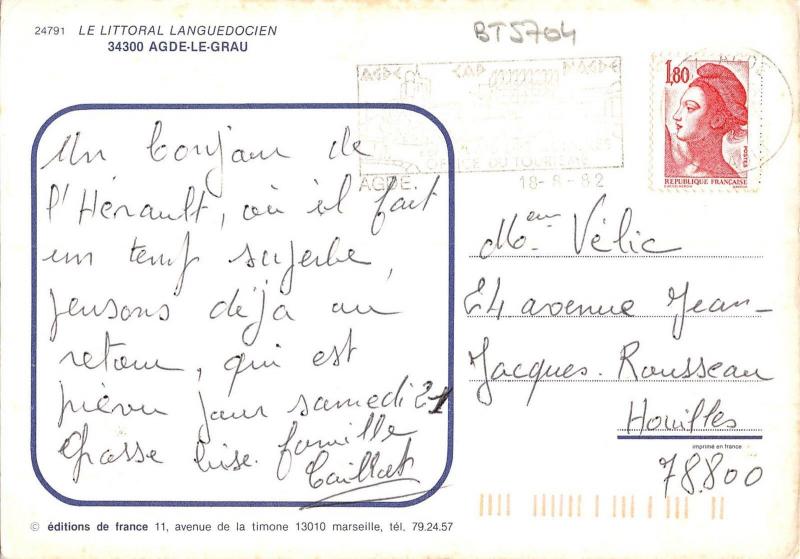 24791 LE LITTORAL LANGUEDOCIEN
34300 AGDE-LE-GRAU
BT5704
AGDE CAP D'AGDE
OFFICE DU TOURISME
AGDE.
18-8-82
AGDE
1,80
POSTES
REPUBLIQUE FRANÇAISE
Un bonjour de
l'Hérault, où il fait
un temps superbe,
pensons déjà au
retour, qui est
prévu pour samedi 21
Grosse bise. famille
Caillat
Mme Vélic
24 avenue Jean-
Jacques. Rousseau
Houilles
imprimé en france
78.800
© éditions de france 11, avenue de la timone 13010 marseille, tél. 79.24.57